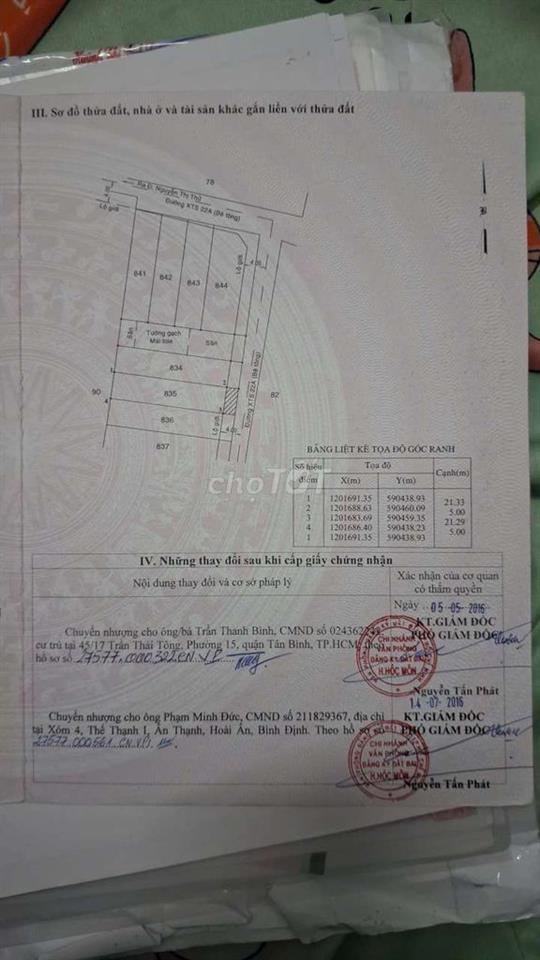 III. Sơ đồ thửa đất, nhà ở và tài sản khác gắn liền với thửa đất
78
Ra Đ. Nguyễn Thị Thử
Đường XTS 22A (Bê tông)
Lộ giới
B
841
842
843
844
Lộ giới
Sân
Tường gạch
Mái tole
Sân
834
90
835
82
836
837
Lộ giới
Đường XTS 22A (Bê tông)
1
4
chợTỐT
BẢNG LIỆT KÊ TỌA ĐỘ GÓC RANH
Số hiệu điểm Tọa độ Cạnh(m)
X(m) Y(m)
1 1201691.35 590438.93
21.33
2 1201688.63 590460.09
5.00
3 1201683.69 590459.35
21.29
4 1201686.40 590438.23
5.00
1 1201691.35 590438.93
IV. Những thay đổi sau khi cấp giấy chứng nhận
Nội dung thay đổi và cơ sở pháp lý
Xác nhận của cơ quan
có thẩm quyền
Ngày 05-05-2016
Chuyển nhượng cho ông/bà Trần Thanh Bình, CMND số
cư trú tại 45/17 Trần Thái Tông, Phường 15, quận Tân Bình, TP.HCM.
hồ sơ số
KT.GIÁM ĐỐC
PHÓ GIÁM ĐỐC
CHI NHÁNH
VĂN PHÒNG
ĐĂNG KÝ ĐẤT ĐAI
H.HÓC MÔN
Nguyễn Tấn Phát
14-07-2016
Chuyển nhượng cho ông Phạm Minh Đức, CMND số 211829367, địa chỉ
tại Xóm 4, Thế Thạnh I, Ân Thạnh, Hoài Ân, Bình Định. Theo hồ sơ số
KT.GIÁM ĐỐC
PHÓ GIÁM ĐỐC
CHI NHÁNH
VĂN PHÒNG
ĐĂNG KÝ ĐẤT ĐAI
H.HÓC MÔN
Nguyễn Tấn Phát